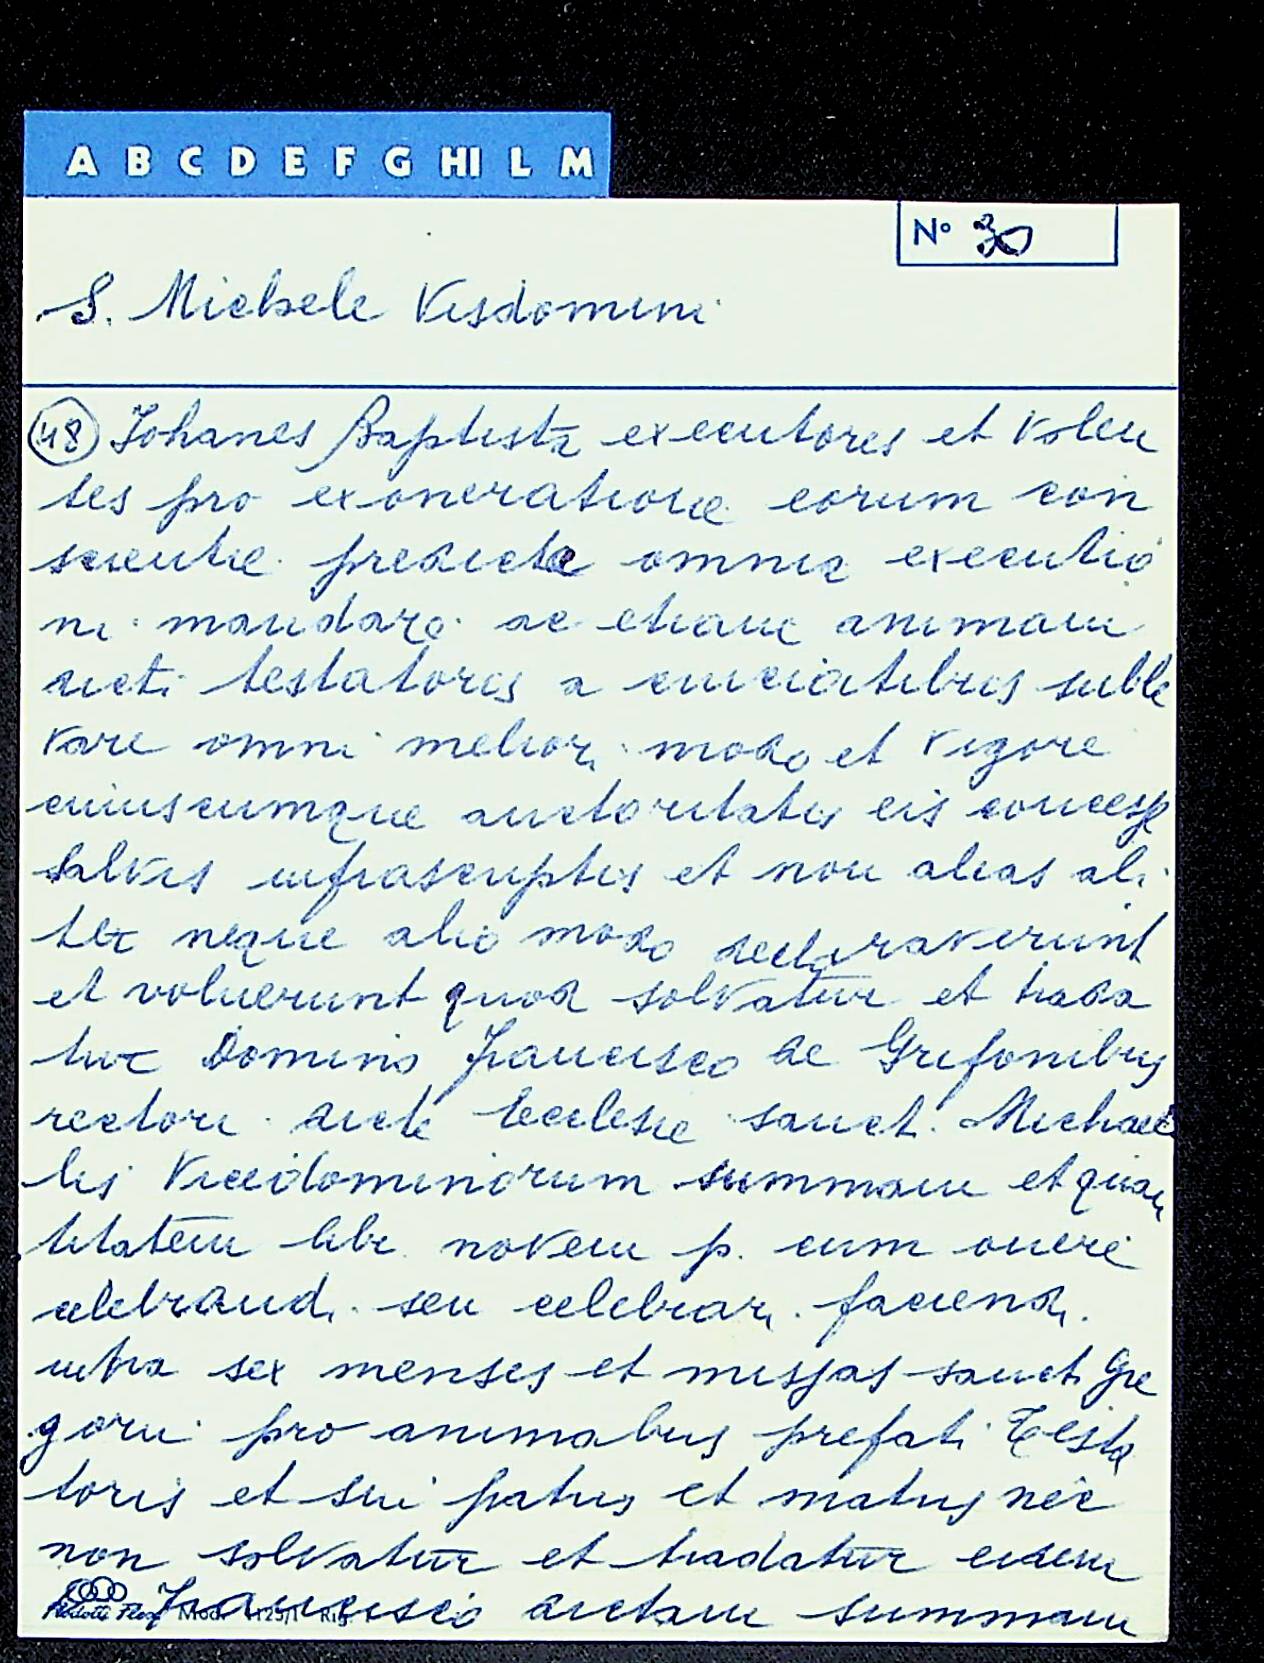 A B C D E F G HI L M
N° 30
S. Michele Visdomini
48 Johanes Baptista executores et volen
tes pro exoneratione eorum con
scientie predicta omnia executio
ni mandare ac etiam animam
dicti testatoris a cruciatibus suble
vare omni meliori modo et vigore
cuiuscumque auctoritatis eis concesse
salvis infrascriptis et non alias ali
ter neque alio modo declaraverunt
et voluerunt quod solvatur et trada
tur Domino Francisco de Grifonibus
rectori dicte Ecclesie sanct. Michae
lis Vicedominorum summam et quan
titatem libr. novem p. cum onere
celebrand. seu celebrari faciend.
intra sex menses et missas sancti Gre
gorii pro animabus prefati Testa
toris et sui patris et matris nec
non solvatur et tradatur eidem
D. Francisco dictam summam
Mod. Rig.